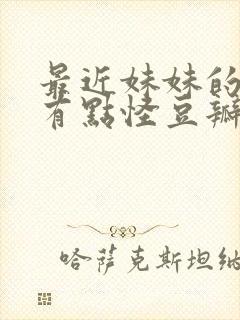 最近妹妹的
有點怪豆瓣
哈萨克斯坦纳